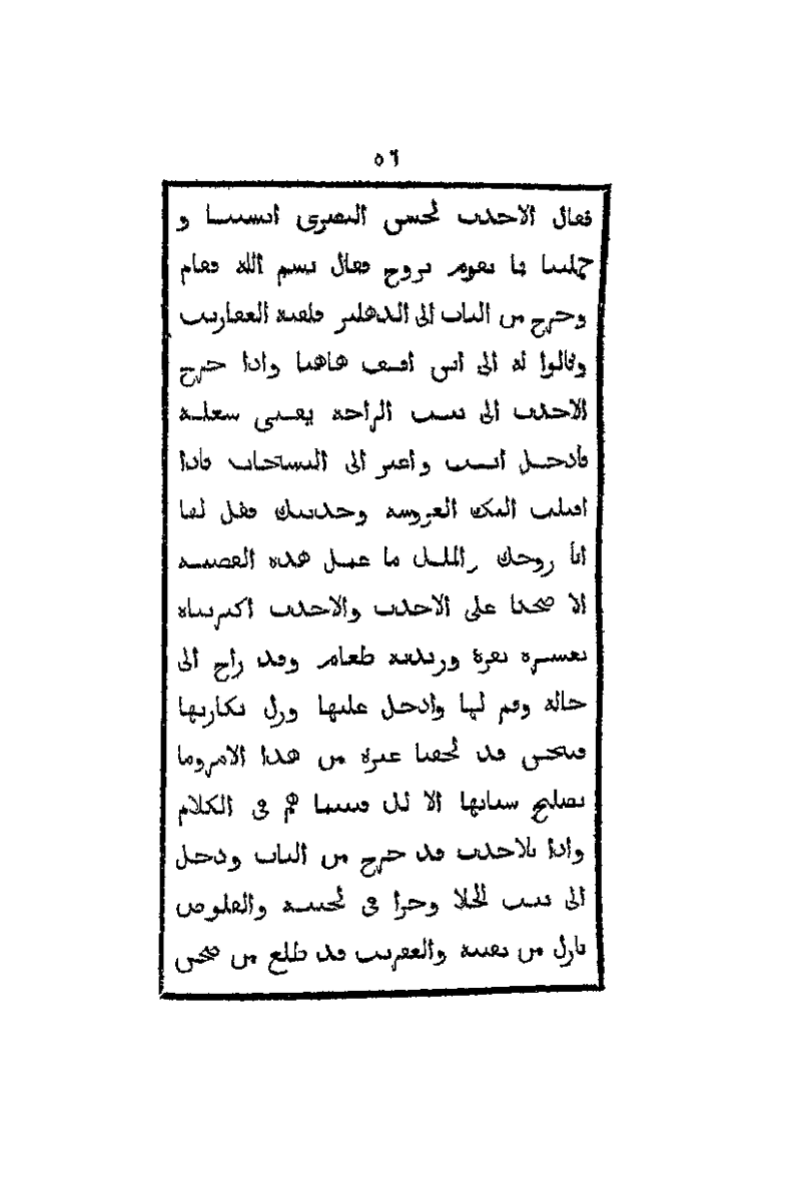 فقال الاحدب لحسن البصرى انستنا و
جملتنا نقوم نروح فقال بسم الله فقام
وخرج من الباب الى الدهليز فلقيه العفاريت
وقالوا له الى اين اقف هاهنا واذا خرج
الاحدب الى بيت الراحه يقضى شغله
فادخل انت واعبر الى البشتخات فاذا
اقبلت اليك العروسه وحدثتك فقل لها
انا زوجك والملك ما عمل هذه القضيه
الا ضحكا على الاحدب والاحدب اكتريناه
بعشره نقرة وزبديه طعام وقد راح الى
حاله وقم لها وادخل عليها وزل بكارتها
فنحن قد لحقنا غيرة من هذا الامر وما
يصلح شبابها الا لك فبينما هم فى الكلام
واذا بالاحدب قد خرج من الباب ودخل
الى بيت الخلا وخرا فى لحيته والفلوص
نازل من والعفريت قد طلع من صحن